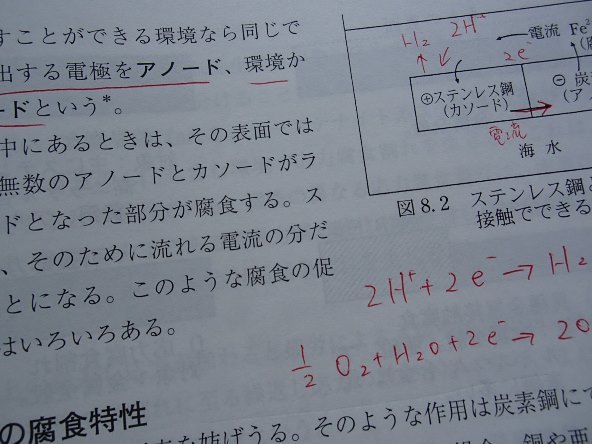 すことができる環境なら同じで
出する電極をアノード、環境か
ードという*。
中にあるときは、その表面では
無数のアノードとカソードがラ
ドとなった部分が腐食する。ス
、そのために流れる電流の分だ
とになる。このような腐食の促
はいろいろある。
の腐食特性
を妨げうる。そのような作用は炭素鋼にて
H₂ 2H⁺
電流 Fe²
2e⁻
⊕ステンレス鋼
(カソード)
⊖ 炭
(ア
電流
海水
図8.2 ステンレス鋼と
接触でできる
2H⁺ + 2e⁻ → H₂
1/2 O₂ + H₂O + 2e⁻ → 2O